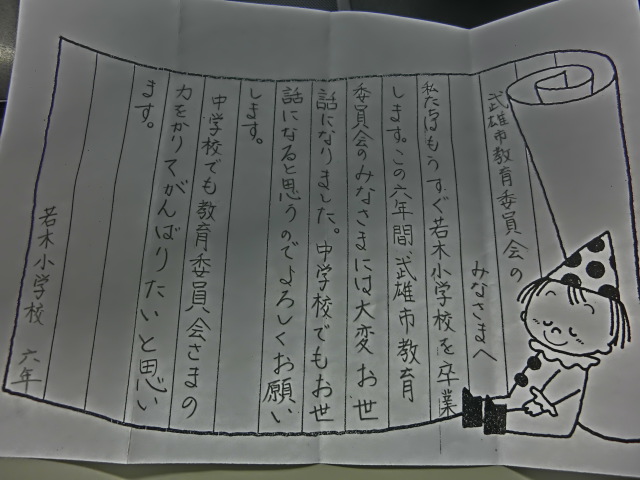 武雄市教育委員会の
みなさまへ
私たちはもうすぐ若木小学校を卒業
します。この六年間、武雄市教育
委員会のみなさまには大変お世
話になりました。中学校でもお世
話になると思うのでよろしくお願い
します。
中学校でも教育委員会さまの
力をかりてがんばりたいと思い
ます。
若木小学校 六年